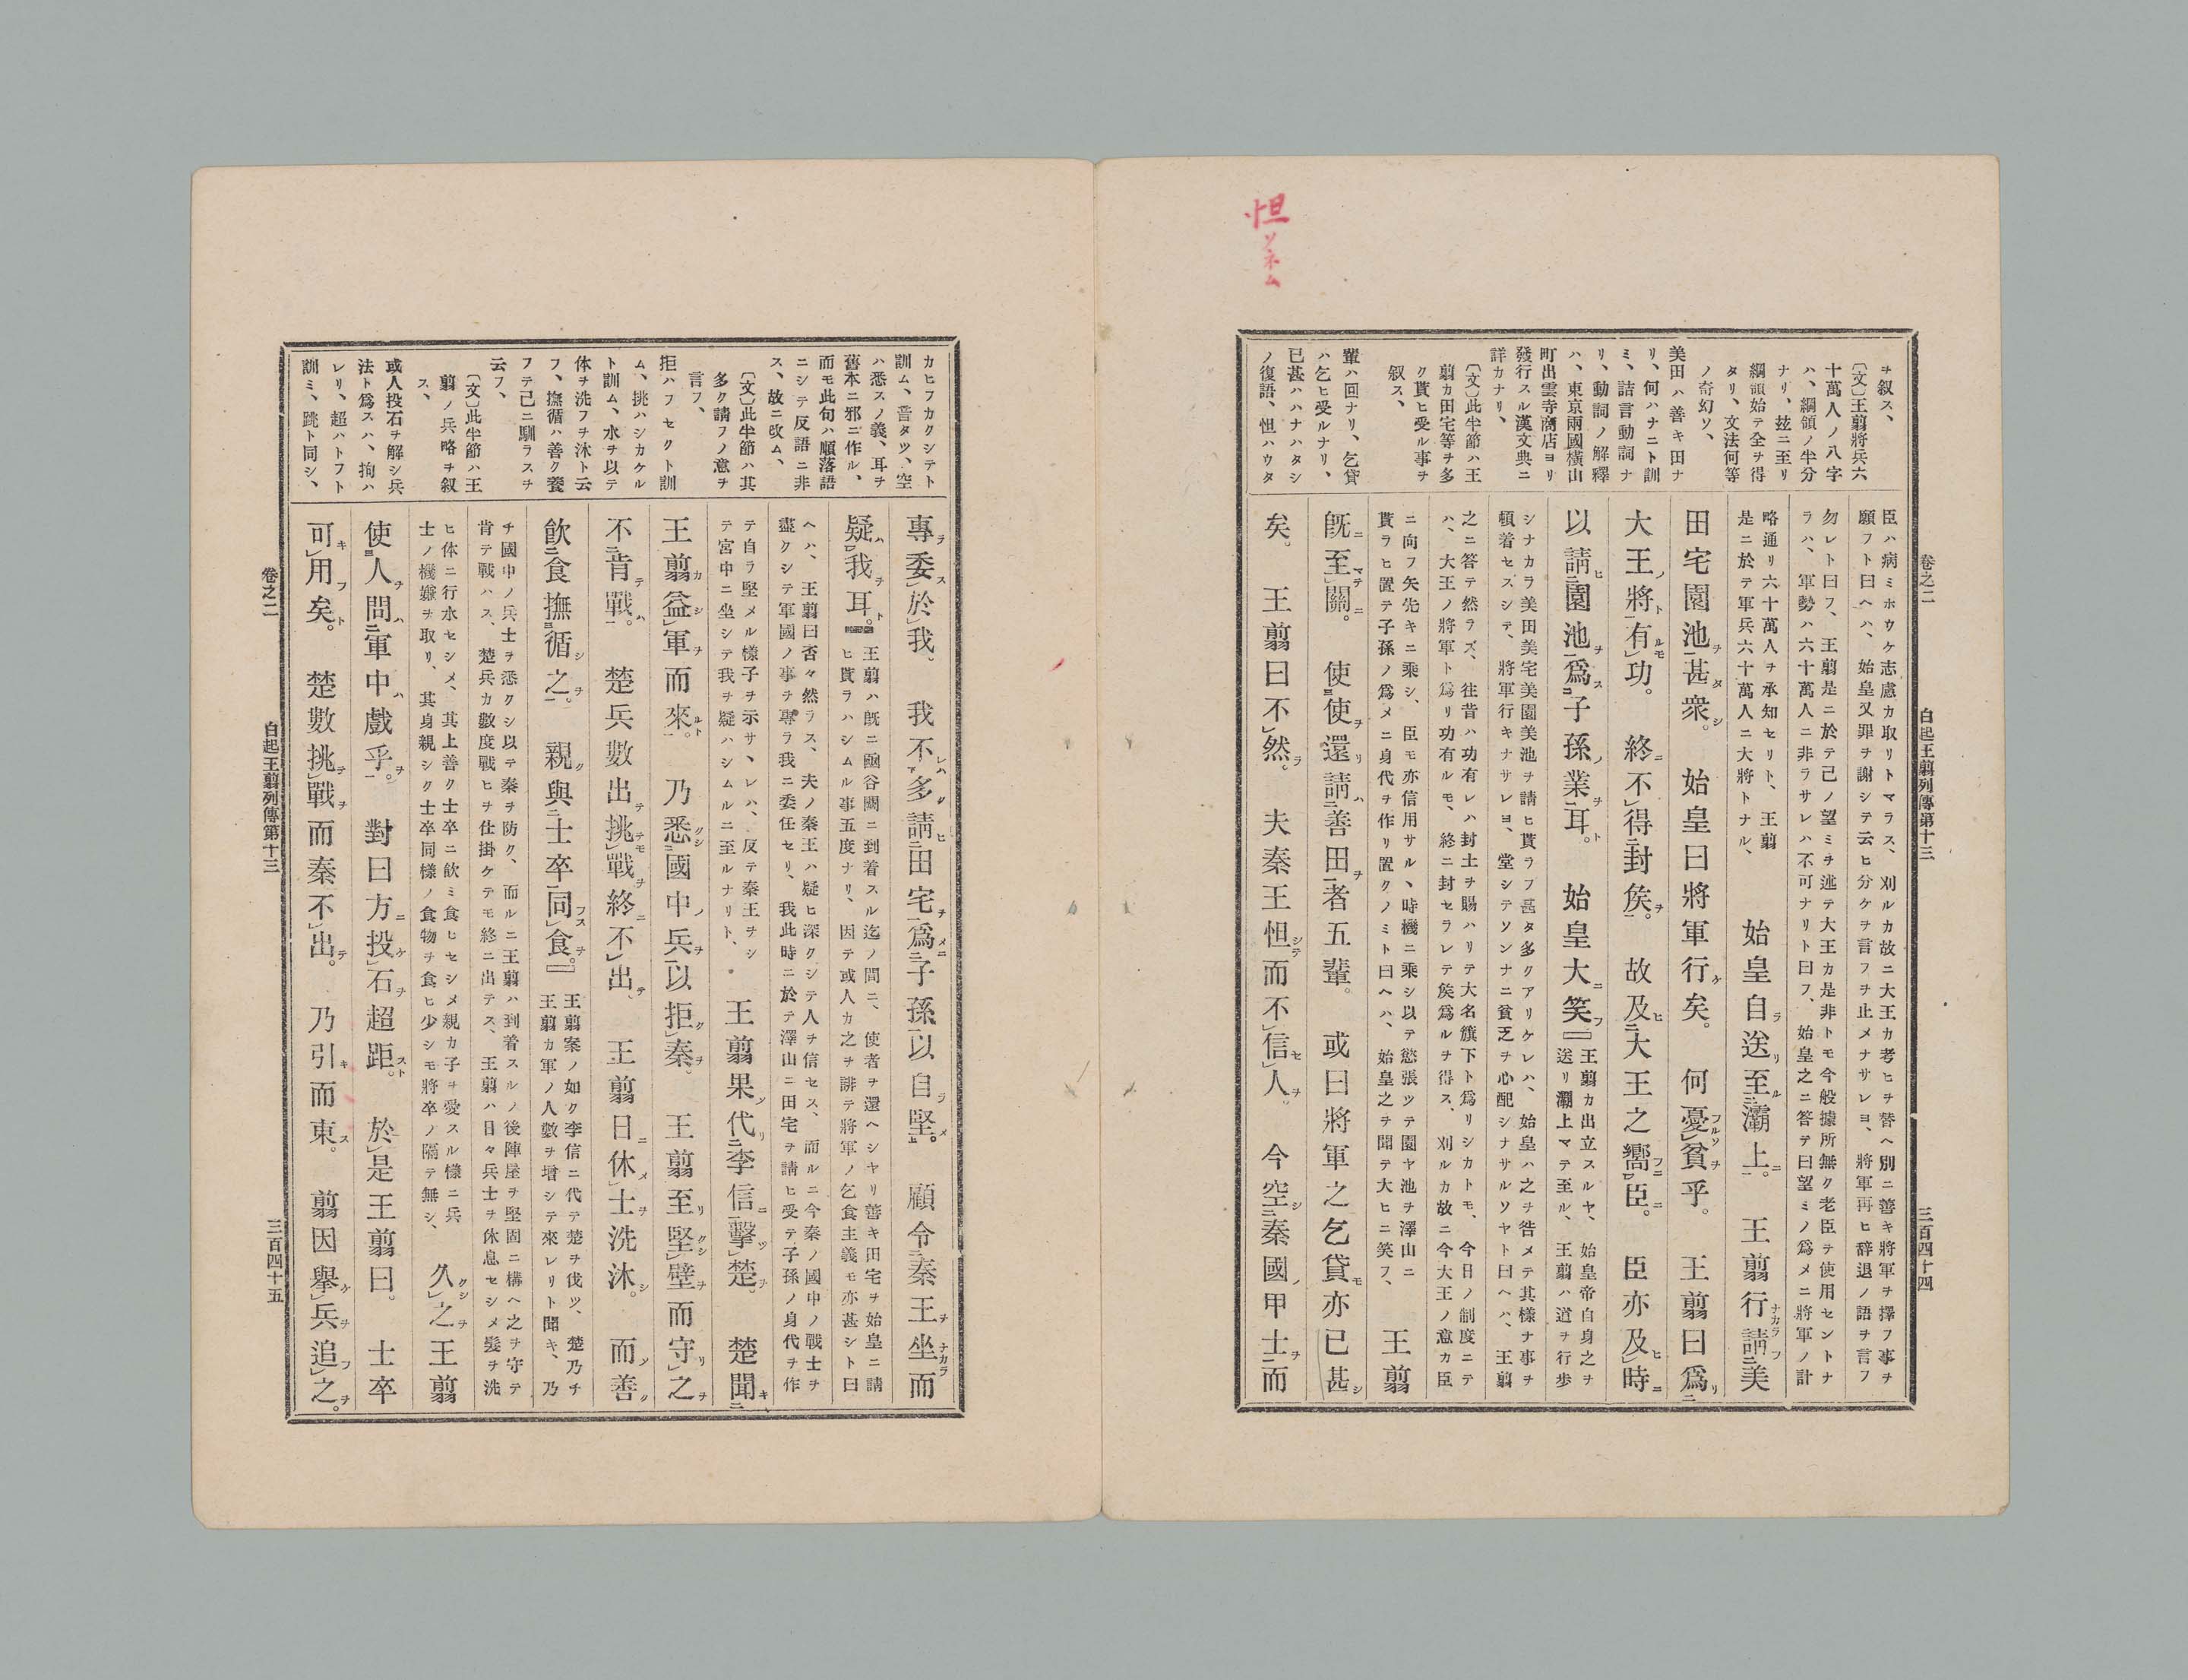 怛
ソネム
卷之二
白起王翦列傳第十三
三百四十四
ヲ叙ス、
〔文〕王翦將兵六
十萬人ノ八字
ハ、綱領ノ半分
ナリ、玆ニ至リ
綱領始テ全ヲ得
タリ、文法何等
ノ奇幻ソ、
美田ハ善キ田ナ
リ、何ハナニト訓
ミ、詰言動詞ナ
リ、動詞ノ解釋
ハ、東京兩國橫山
町出雲寺商店ヨリ
發行スル漢文典ニ
詳カナリ、
〔文〕此半節ハ王
翦カ田宅等ヲ多
ク貰ヒ受ル事ヲ
叙ス、
輩ハ回ナリ、乞貸
ハ乞ヒ受ルナリ、
已甚ハハナハタシ
ノ復語、怛ハウタ
臣ハ病ミホウケ志慮カ取リトマラス、刈ルカ故ニ大王カ考ヒヲ替ヘ別ニ善キ將軍ヲ擇フ事ヲ
願フト曰ヘハ、始皇又罪ヲ謝シテ云ヒ分ケヲ言フヲ止メナサレヨ、將軍再ヒ辞退ノ語ヲ言フ
勿レト曰フ、王翦是ニ於テ己ノ望ミヲ述テ大王カ是非トモ今般據所無ク老臣ヲ使用セントナ
ラハ、軍勢ハ六十萬人ニ非ラサレハ不可ナリト曰フ、始皇之ニ答テ曰望ミノ爲メニ將軍ノ計
略通リ六十萬人ヲ承知セリト、王翦
是ニ於テ軍兵六十萬人ニ大將トナル、
始皇自ラ送リ至ル二灞上ニ一。王翦行ナカラ請フ二美
田宅園池ヲ一甚タ衆シ。始皇曰將軍行ケ矣。何憂フルソレ貧ヲ乎。王翦曰爲リ二
大王ノ將ト一有ルモレ功。終ニ不レ得二封矦ヲ一。故及ヒ二大王之嚮フニ一レ臣ニ。臣亦及ヒレ時ニ
以請ヒ二園池ヲ一爲ス二子孫ノ業ヲ一耳ト。始皇大ニ笑フ
王翦カ出立スルヤ、始皇帝自身之ヲ
送リ灞上マテ至ル、王翦ハ道ヲ行歩
シナカラ美田美宅美園美池ヲ請ヒ貰ラフ甚タ多クアリケレハ、始皇ハ之ヲ咎メテ其樣ナ事ヲ
頓着セスシテ、將軍行キナサレヨ、堂シテソンナニ貧乏ヲ心配シナサルソヤト曰ヘハ、王翦
之ニ答テ然ラズ、往昔ハ功有レハ封土ヲ賜ハリテ大名籏下ト爲リシカトモ、今日ノ制度ニテ
ハ、大王ノ將軍ト爲リ功有ルモ、終ニ封セラレテ矦爲ルヲ得ス、刈ルカ故ニ今大王ノ意カ臣
ニ向フ矢先キニ乘シ、臣モ亦信用サルヽ時機ニ乘シ以テ慾張ツテ園ヤ池ヲ澤山ニ
貰ラヒ置テ子孫ノ爲メニ身代ヲ作リ置クノミト曰ヘハ、始皇之ヲ聞テ大ヒニ笑フ、
王翦
旣ニ至マテレ關ニ。使三使ヲ還リ請ハ二善田ヲ一者五輩。或曰將軍之乞貸モ亦已甚シ
矣。王翦曰不レ然ラ。夫秦王怛シテ而不レ信セレ人ヲ。今空シ二秦國ノ甲士ヲ一而
カヒフカクシテト
訓ム、音タツ、空
ハ悉スノ義、耳ヲ
舊本ニ邪ニ作ル、
而モ此句ハ順落語
ニシテ反語ニ非
ス、故ニ改ム、
〔文〕此半節ハ其
多ク請フノ意ヲ
言フ、
拒ハフセクト訓
ム、挑ハシカケル
ト訓ム、水ヲ以テ
体ヲ洗フヲ沐ト云
フ、撫循ハ善ク養
フテ己ニ馴ラスヲ
云フ、
〔文〕此半節ハ王
翦ノ兵略ヲ叙
ス、
或人投石ヲ解シ兵
法ト爲スハ、拘ハ
レリ、超ハトフト
訓ミ、跳ト同シ、
專ラ委スレ於レ我。我不レハ多ク請ヒ二田宅ヲ一爲メニ二子孫ノ一以自ラ堅メ。顧令二秦王ヲ坐ナカラ而
疑ハ一レ我ヲ耳ト。
王翦ハ旣ニ凾谷關ニ到着スル迄ノ間ニ、使者ヲ還ヘシヤリ善キ田宅ヲ始皇ニ請
ヒ貰ラハシムル事五度ナリ、因テ或人カ之ヲ誹テ將軍ノ乞食主義モ亦甚シト曰
ヘハ、王翦曰否々然ラス、夫ノ秦王ハ疑ヒ深クシテ人ヲ信セス、而ルニ今秦ノ國中ノ戰士ヲ
盡クシテ軍國ノ事ヲ專ラ我ニ委任セリ、我此時ニ於テ澤山ニ田宅ヲ請ヒ受テ子孫ノ身代ヲ作
テ自ラ堅メル樣子ヲ示サヽレハ、反テ秦王ヲシ
テ宮中ニ坐シテ我ヲ疑ハシムルニ至ルナリト、
王翦果代リ二李信ニ一擊ツレ楚ヲ。楚聞キ二
王翦益シレ軍ヲ而來ルト一。乃悉クシ二國中ノ兵ヲ一以拒クレ秦ヲ。王翦至リ堅クシレ壁ヲ而守リレ之ヲ
不二肯テ戰ハ一。楚兵數出テ挑テモレ戰ヲ終ニ不レ出テ。王翦日ニ休メレ士ヲ洗沐シ。而善ク
飮二食撫三循シ之ヲ一。親ク與二士卒一同フスレ食ヲ。
王翦案ノ如ク李信ニ代テ楚ヲ伐ツ、楚乃チ
王翦カ軍ノ人數ヲ增シテ來レリト聞キ、乃
チ國中ノ兵士ヲ悉クシ以テ秦ヲ防ク、而ルニ王翦ハ到着スルノ後陣屋ヲ堅固ニ構ヘ之ヲ守テ
肯テ戰ハス、楚兵カ數度戰ヒヲ仕掛ケテモ終ニ出テス、王翦ハ日々兵士ヲ休息セシメ髮ヲ洗
ヒ体ニ行水セシメ、其上善ク士卒ニ飮ミ食ヒセシメ親カ子ヲ愛スル樣ニ兵
士ノ機嫌ヲ取リ、其身親シク士卒同樣ノ食物ヲ食ヒ少シモ將卒ノ隔テ無シ、
久クシレ之ヲ王翦
使三人ヲ問ハ二軍中ハ戲乎ヲ一。對曰方ニ投ケレ石ヲ超距スト。於レ是王翦曰。士卒
可キレ用フ矣ト。楚數挑テレ戰ヲ而秦不レ出テ。乃引キ而東ス。翦因舉ケレ兵ヲ追フレ之ヲ。
卷之二
白起王翦列傳第十三
三百四十五